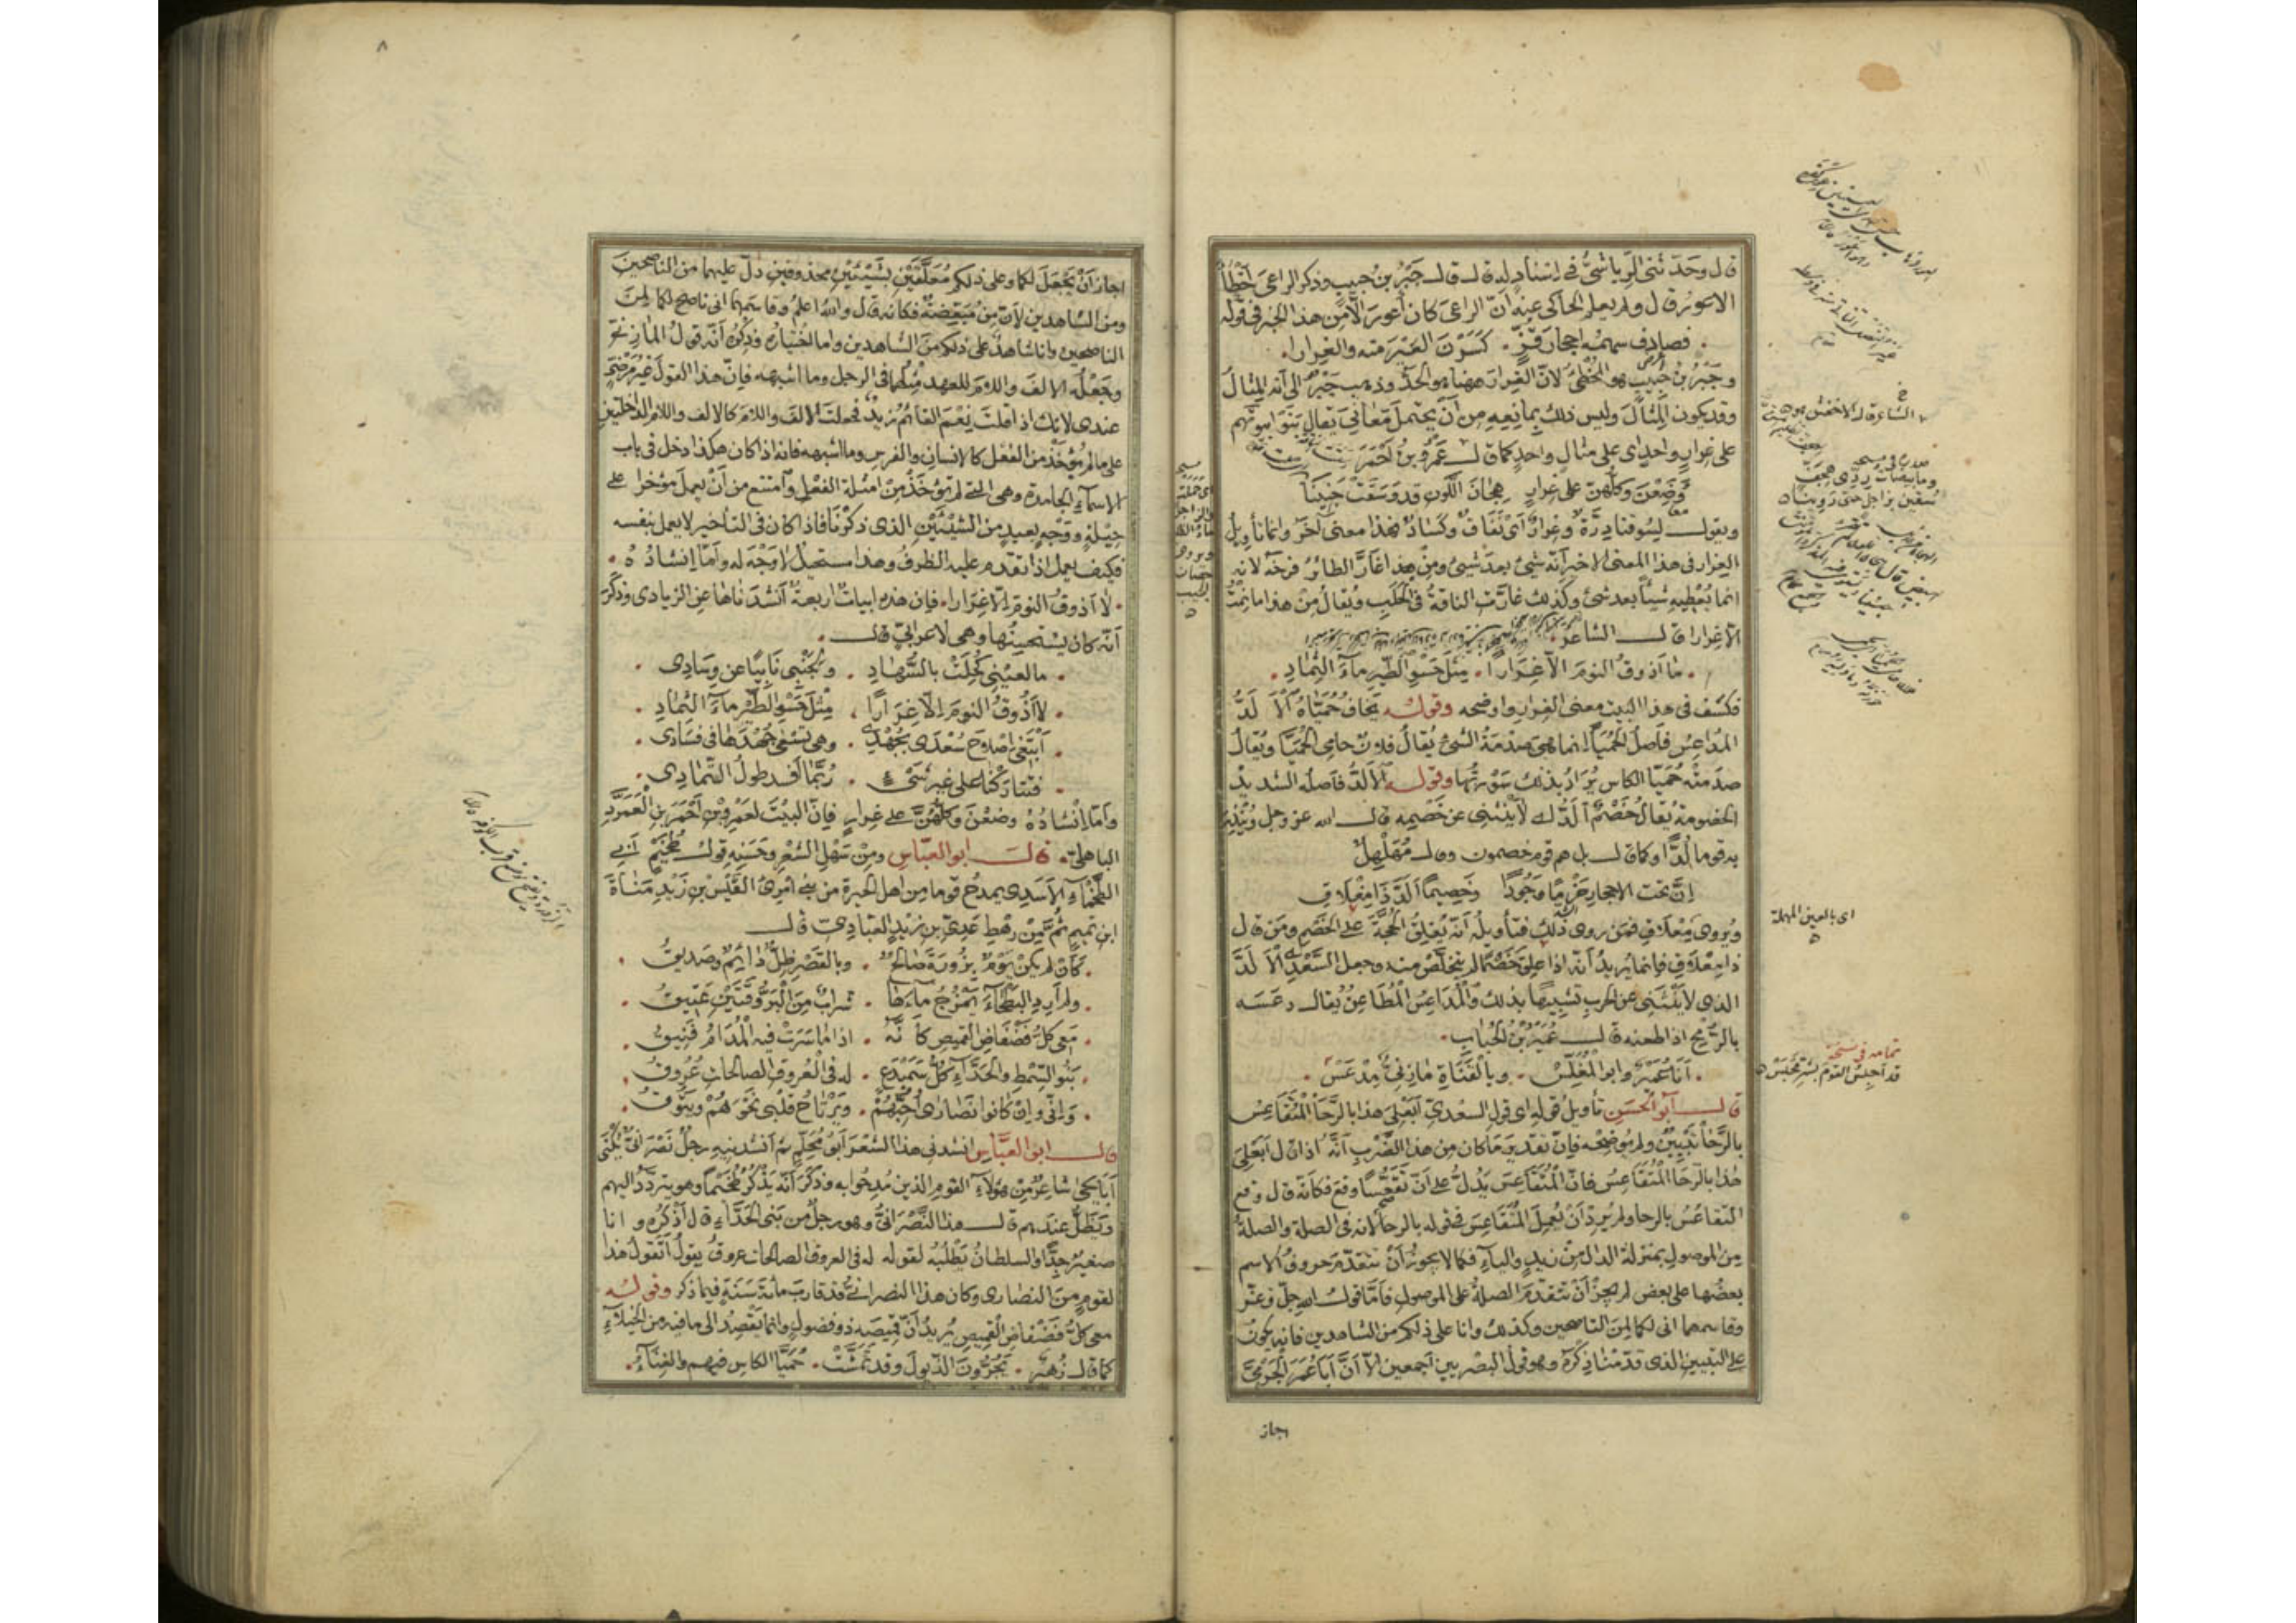 قال وحدثني الرياشي في إسناد له قال قال جبر بن حبيب وذكر الراعي أخطأ
الاعور قال ولم يعلم الحاكي عنه ان الراعي كان أعور الا من هذا الخبر في قوله
فصادف سهمه احجار قف . كسرن العير منه والغرارا
وجبر بن حبيب هو المخطئ لان الغرار ههنا هو الحد وذهب جبر الى أنه المثال
وقد يكون المثال وليس ذلك بمانعه من أن يحتمل معاني يقال بنوا بيوتهم
على غرار واحد اى على مثال واحد كما قال عمرو بن أحمر
وضعن وكلهن على غرار هجان اللون قد وسقت جنينا
ويقول لسوقنا درة وغرار أى نفاق وكساد فهذا معنى آخر وانما تأويل
الغرار في هذا المعنى الاخير أنه شيء بعد شيء ومن هذا غار الطائر فرخه لانه
انما يعطيه شيئا بعد شيء وكذلك غارت الناقة في الحلب ويقال من هذا ما نمت
الا غرارا قال الشاعر
ما أذوق النوم الا غرارا . مثل حسو الطير ماء الثماد .
فكشف في هذا البيت معنى الغرار واوضحه وقوله يخاف حمياه الالد
المداعس فأصل الحميا انما هي صدمة الشئ يقال فلان حامى الحميا ويقال
صدمته حميا الكاس يراد بذلك سورتها وقوله الألد فأصله الشديد
الخصومة يقال خصم ألد اى لا ينثني عن خصمه قال الله عز وجل وتنذر
به قوما لدا وكما قال بل هم قوم خصمون وقال مهلهل
ان تحت الاحجار حزما وجودا وخصيما ألد ذا مغلاق
ويروى معلاق فمن روى ذلك فتأويله أنه يغلق الحجة على الخصم ومن قال
ذا معلاق فانما يريد أنه اذا علق خصما لم يتخلص منه وجعل السعدى الألد
الذى لا ينثنى عن الحرب تشبيها بذلك والمداعس المطاعن يقال دعسه
بالرمح اذا طعنه قال عمير بن الحباب
أنا عمير وابو المغلس . وبالقناة مازني مدعس .
قال أبو الحسن تأويل قوله اى قول السعدى ابعلي هذا بالرحا المتقاعس
بالرحا تبيين ولم يوضحه فان تقدير ما كان من هذا الضرب أنه اذا قال أبعلي
هذا بالرحا المتقاعس فان المتقاعس يدل على أن تقعسا وقع فكأنه قال وقع
التقاعس بالرحا ولم يرد أن يعمل المتقاعس في قوله بالرحا لانه في الصلة والصلة
من الموصول بمنزلة الدال من زيد والياء فكما لا يجوز أن تتقدم حروف الاسم
بعضها على بعض لم يجز أن تتقدم الصلة على الموصول فأما قول الله جل وعز
وقاسمهما انى لكما لمن الناصحين وكذلك وانا على ذلكم من الشاهدين فانه يكون
على التبيين الذى قدمنا ذكره وهو قول البصريين أجمعين الا أن أبا عمر الجرمي
اجاز
الشاعر قال الاخفش
وما بيضات ذى
اى بالعين المهملة
تمامه في نسخة
قد أجلس القوم بشر مجلس
٨
اجاز أن يجعل لكما وعلى ذلكم معلقين بشيئين محذوفين دل عليهما من الناصحين
ومن الشاهدين لان من مبعضة فكانه قال والله اعلم وقاسمهما انى ناصح لكما لمن
الناصحين وانا شاهد على ذلكم من الشاهدين واما اختياره وذكره أنه قول المازني
وجعله الالف واللام للعهد مثلها في الرجل وما اشبهه فان هذا القول غير مرضي
عندى لانك اذا قلت نعم القائم زيد فجعلت الالف واللام كالالف واللام الداخلتين
على ما لم يؤخذ من الفعل كالانسان والفرس وما اشبهه فانه اذا كان هكذا دخل في باب
الاسماء الجامدة وهى التي لم تؤخذ من امثلة الفعل وامتنع من أن يعمل مؤخرا على
حيلة ووجه بعيد من الشيئين الذى ذكرنا فاذا كان في التأخير لا يعمل بنفسه
فكيف يعمل اذا تقدم عليه الظرف وهذا مستحيل لا وجه له وأما انشاده
لا أذوق النوم الا غرارا . فان هذه ابيات اربعة أنشدناها عن الزيادى وذكر
أنه كان يستحسنها وهى لاعرابي قال
ما لعيني كحلت بالسهاد . ولجنبي نابيا عن وسادى .
لا أذوق النوم الا غرارا . مثل حسو الطير ماء الثماد .
أبتغى اصلاح سعدى بجهدى . وهى تسعى جهدها في فسادى .
فتتاركنا على غير شئ . ربما أفسد طول التمادى .
وأما انشاده وضعن وكلهن على غرار فان البيت لعمرو بن أحمر بن العمرد
الباهلي . قال ابو العباس ومن سهل الشعر وحسنه قول طخيم أبي
الطخماء الأسدى يمدح قوما من اهل الحيرة من بنى امرئ القيس بن زيد مناة
ابن تميم ثم من رهط عدى بن زيد العبادى قال
كأن لم يكن يوم بزورة صالح . وبالقصر ظل دائم وصديق .
ولم أرد البطحاء يمزج ماءها . شراب من البروقتين عتيق .
معى كل فضفاض القميص كأنه . اذا ما سرت فيه المدام فنيق .
بنو السمط والحداء كل سميدع . له في العروق الصالحات عروق .
وانى وان كانوا نصارى احبهم . ويرتاح قلبى نحوهم ويتوق .
قال ابو العباس انشدنى هذا الشعر أبو محلم ثم أنشدنيه رجل نصرانى يكنى
أبا يحيى شاعر من هؤلاء القوم الذين مدحوا به وذكر أنه يذكر طخيما وهو يتردد اليهم
ويظل عندهم قال هذا النصرانى وهو رجل من بنى الحداء قال أذكره وانا
صغير جدا والسلطان يطلبه لقوله له في العروق الصالحات عروق يقول أتقول هذا
لقوم من النصارى وكان هذا النصرانى قد قارب مائة سنة فيما ذكر وقوله
معى كل فضفاض القميص يريد أن قميصه ذو فضول وانما يقصد الى ما فيه من الخيلاء
كما قال زهير . يجرون الذيول وقد تمشت . حميا الكاس فيهم والغناء .